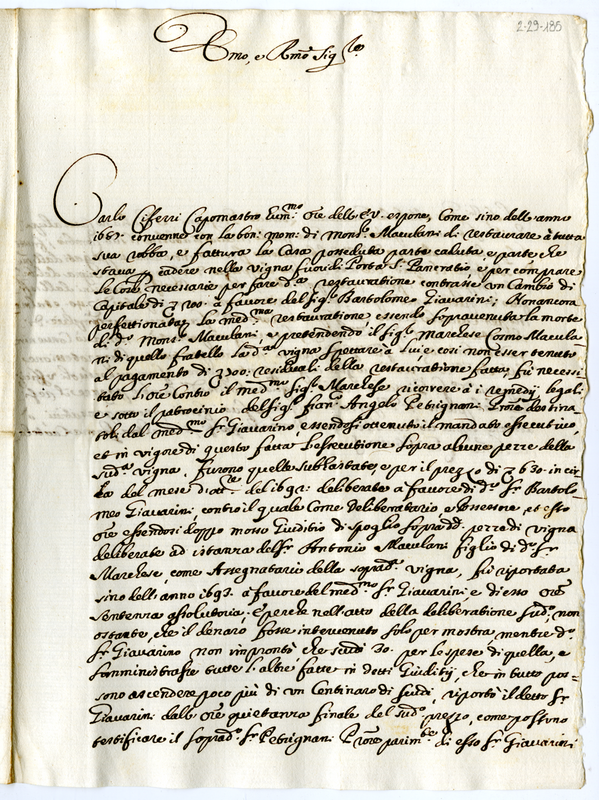 2-29-185
Emo, e Rmo Sig.re
Carlo Ciferri Capomastro hum.mo Ore dell' E.V. espone, Come sino dell' anno
1687. convenne con la bon: mem: di Mons.r Maculani di restaurare à tutta
sua robba, e fattura la Casa posseduta parte caduta, e parte che
stava p cadere nella vigna fuori di Porta S. Pancratio, e per comprare
le Cose necessarie per fare d.a restauratione contrasse un Cambio di
Capitale di 200. à favore del Sig.r Bartolomeo Giavarini; Non ancora
perfettionata la med.ma restauratione essendo sopravenuta la morte
di d.o Mons.r Maculani, e pretendendo il Sig.r Marchese Cosmo Macula
ni di quello fratello la d.a vigna spettare à lui, e così non esser tenuto
al pagamento di 300: residuali della restauratione fatta, fù necessi
tato l'Ore contro il med.mo Sig.r Marchese ricorrere à i remedij legali
e sotto il patrocinio del Sig.r Fran.co Angelo Petrignani Pro.re destina
toli dal med.mo Sr Giavarino, essendosi ottenuto il mandato essecutivo,
et in vigore di questo fatta l'essecutione sopra alcune pezze della
sud.a vigna, furono quelle subhastate, e per il prezzo di 630 in cir
ca del mese d' del 1692: deliberate à favore di d.o Sr Bartolo
meo Giavarini, contro il quale Come deliberatario e Possessore, et esso
Ore essendosi doppo mosso Giuditio di spoglio sopra d.e pezze di vigna
deliberate ad istanza del Sr Antonio Maculani figlio di d.o Sr
Marchese, come Assegnatario della soprad.a vigna, fù riportata
sino dell' anno 1693. à favore del med.mo Sr Giavarini, e di esso Ore
sentenza assolutoria; e perche nell' atto della deliberatione sud.a, non
ostante, che il denaro fosse intervenuto solo per mostra, mentre d.o
Sr Giavarino non improntò che scudi 30. per le spese di quella, e
somministrasse tutte l'altre fatte in detti Giuditij, che in tutto pos-
sono ascendere poco più di un Centinaro di scudi, riportò il detto Sr
Giavarini dall' Ore quietanza finale del sud.o prezzo, come possono
testificare il soprad.o Sr Petrignani Pro.re parim.te di esso Sr Giavarini